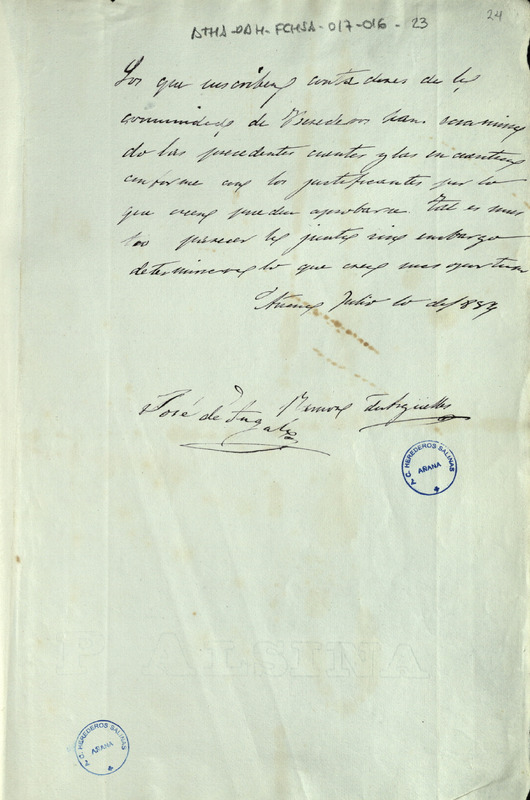 24
ATHA-DAH-FCHSA-017-016-23
Los que suscriben contadores de la
comunidad de Herederos han examina
do las precedentes cuentas y las encuentran
conforme con los justificantes por lo
que creen pueden aprobarse. Tal es nues
tro parecer la junta sin embargo
determinara lo que crea mas oportuno
Julio 10 de 1859
José de Ramon de Argüelles
C. HEREDEROS SALINAS
ARANA
ANISLA P
C. HEREDEROS SALINAS
ARANA